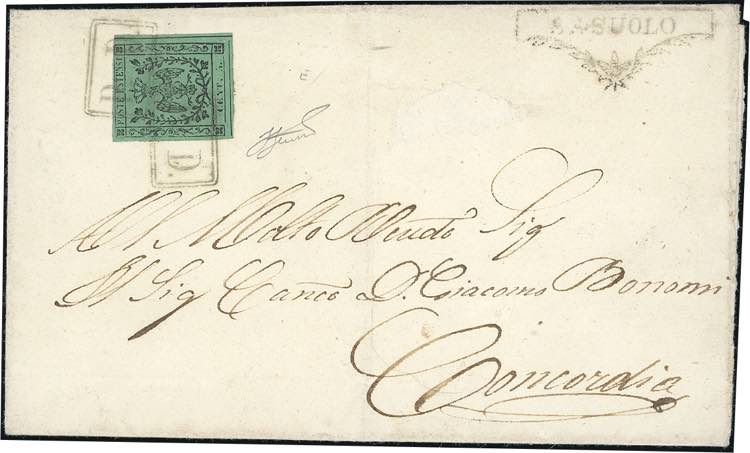 SASUOLO
P. D.
POSTE ESTENSI
CENT. 5.
P. D.
Al Molto Revdo Sig
Il Sig Canco D. Giacomo Bonomi
Concordia